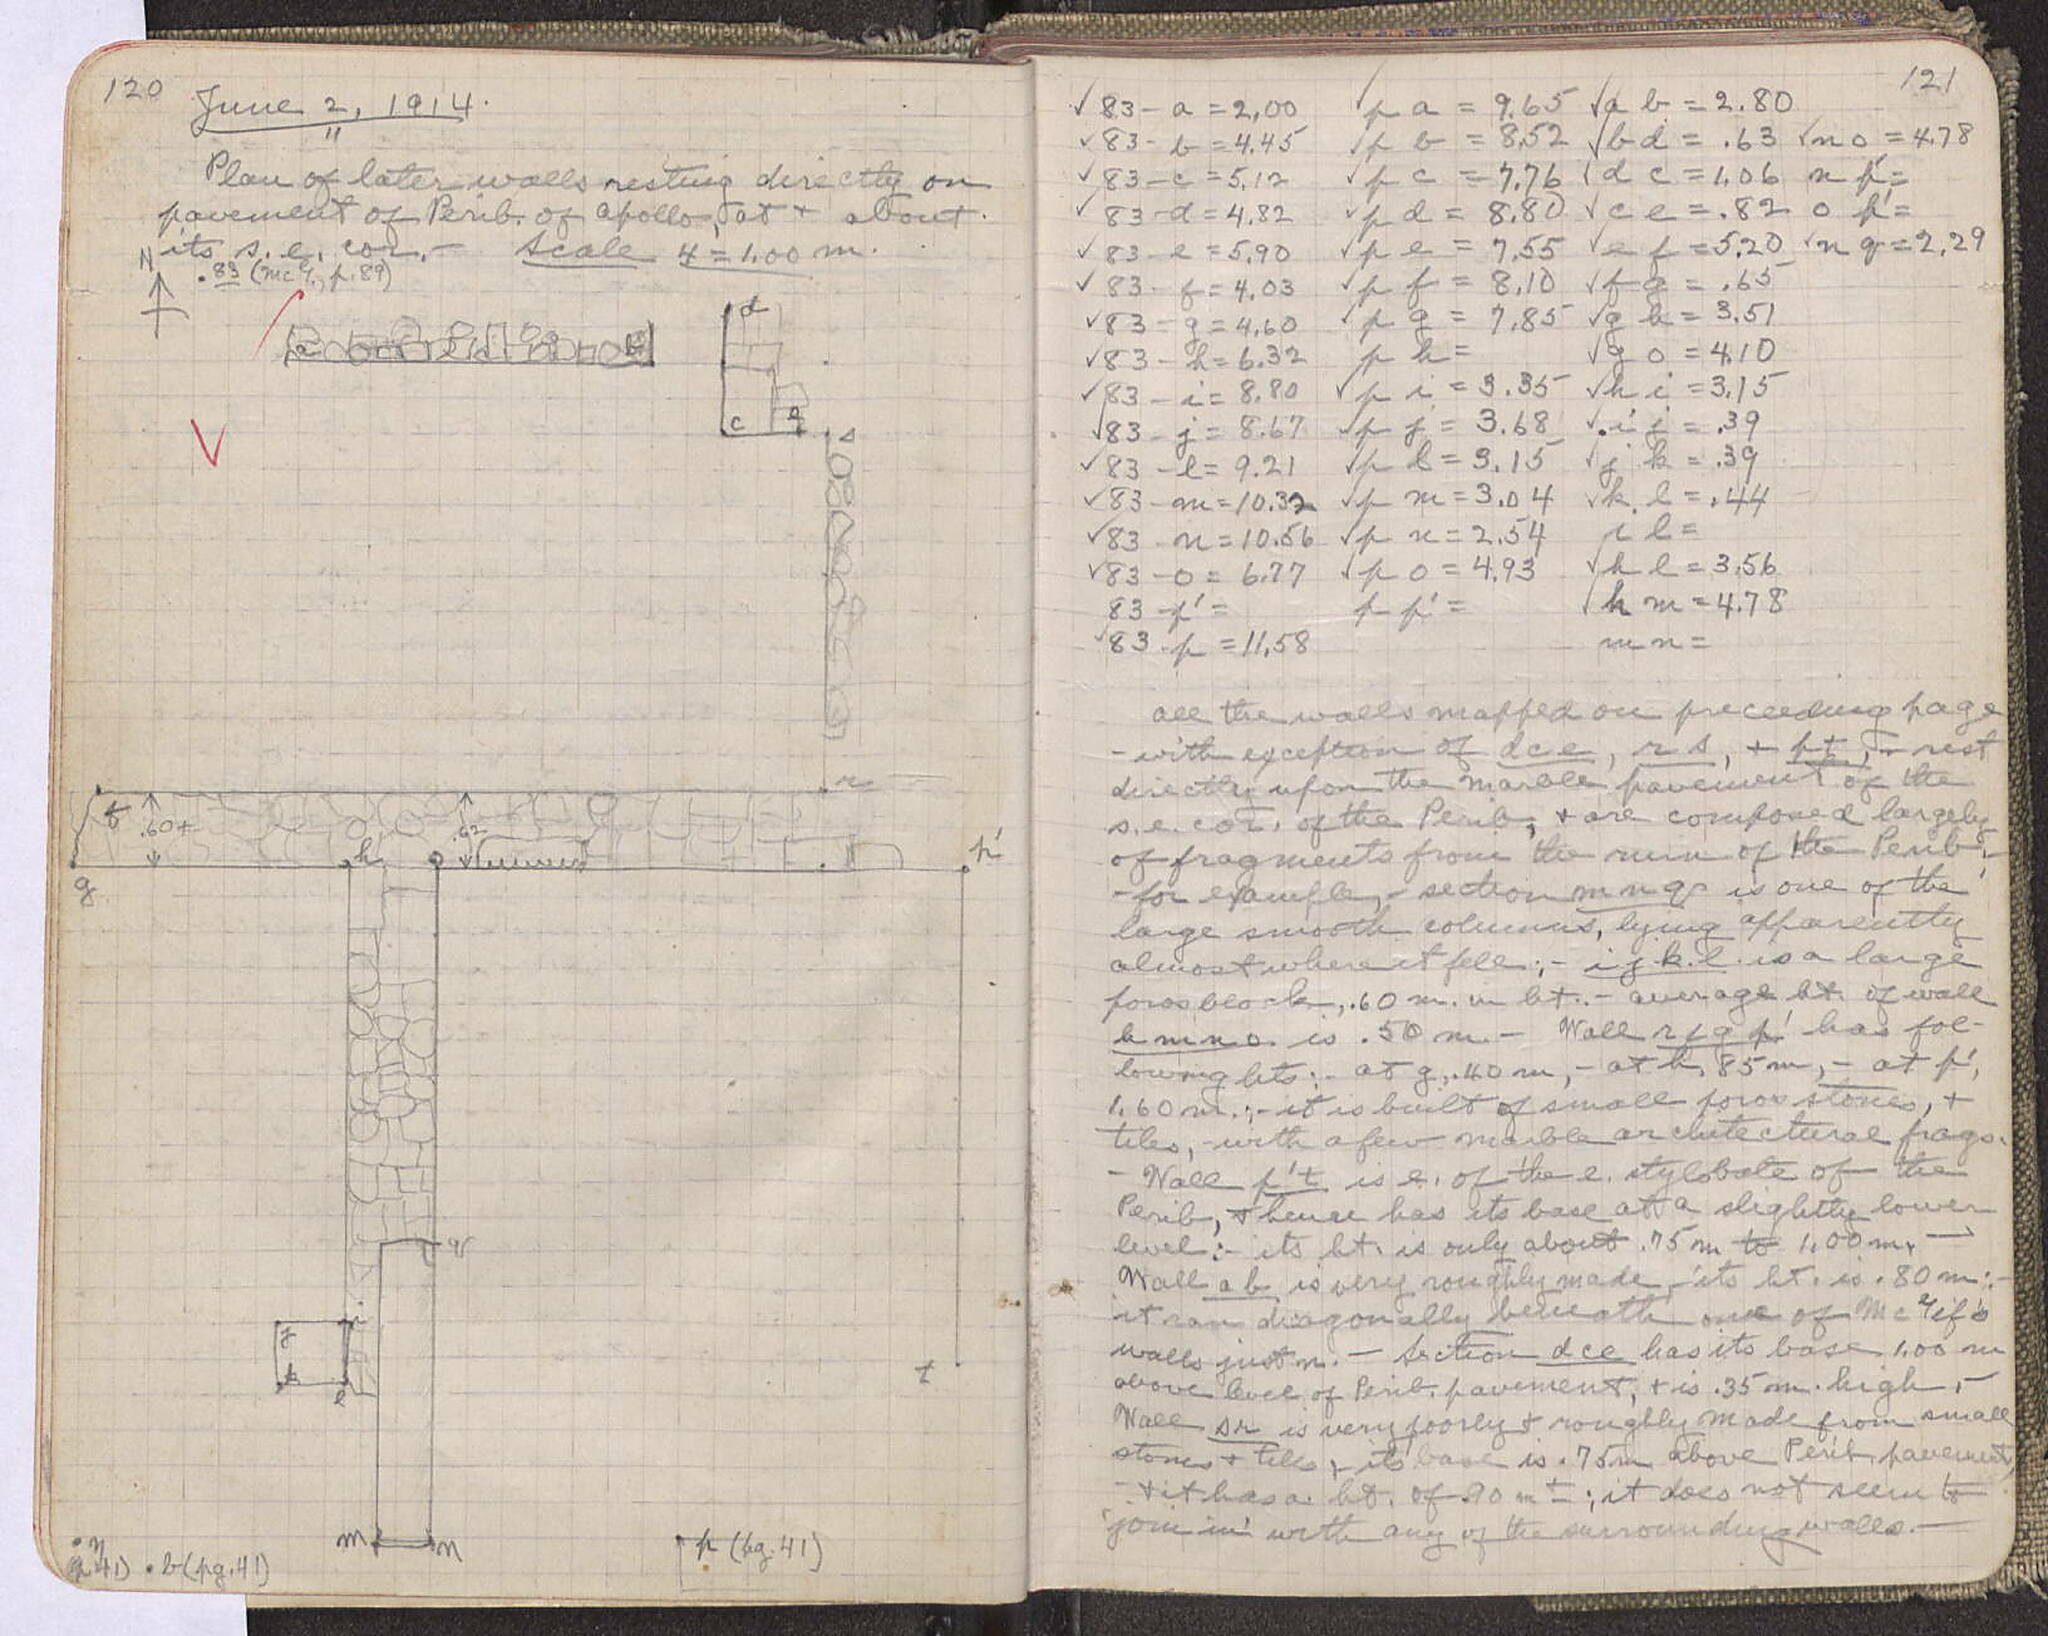 120
June 2, 1914.
"
Plan of later walls resting directly on
pavement of Perib. of Apollo, at + about
its s.e. cor. - Scale 4 = 1.00 m.
N
.83 (McC., p. 89)
a
b
d
c
e
s
r
f
.60±
.62
h
o
p'
g
q
i
j
k
l
t
m
n
p (pg. 41)
n
p. 41) . b (pg. 41)
121
√83 - a = 2.00 √p a = 9.65 √a b = 2.80
√83 - b = 4.45 √p b = 8.52 √b d = .63 √n o = 4.78
√83 - c = 5.12 √p c = 7.76 √d c = 1.06 n p' =
√83 - d = 4.82 √p d = 8.80 √c e = .82 o p' =
√83 - e = 5.90 √p e = 7.55 √e f = 5.20 √n q = 2.29
√83 - f = 4.03 √p f = 8.10 √f g = .65
√83 - g = 4.60 √p g = 7.85 √g h = 3.51
√83 - h = 6.32 p h = √g o = 4.10
√83 - i = 8.80 √p i = 3.35 √h i = 3.15
√83 - j = 8.67 √p j = 3.68 √i j = .39
√83 - l = 9.21 √p l = 3.15 √j k = .39
√83 - m = 10.32 √p m = 3.04 √k l = .44
√83 - n = 10.56 √p n = 2.54 i l =
√83 - o = 6.77 √p o = 4.93 √h l = 3.56
83 - p' = p p' = √h m = 4.78
√83 - p = 11.58 m n =
All the walls mapped on preceeding page
- with exception of dce, rs, + p't, - rest
directly upon the marble pavement of the
s.e. cor. of the Perib., + are composed largely
of fragments from the ruin of the Perib.; -
- for example, - section mnq is one of the
large smooth columns, lying apparently
almost where it fell; - i j. k. l. is a large
poros block, .60 m. in ht. - average ht. of wall
h m n o. is .50 m. - Wall r f g p' has fol-
lowing hts: - at g, .40 m, - at h, .85 m, - at p',
1.60 m.; - it is built of small poros stones, +
tiles, - with a few marble architectural frags.
- Wall p't is e. of the e. stylobate of the
Perib., + hence has its base at a slightly lower
level: - its ht. is only about .75 m to 1.00 m. →
Wall ab is very roughly made, its ht. is .80 m: -
it ran diagonally beneath one of McC's
walls just n. - Section dce has its base 1.00 m
above level of Perib. pavement, + is .35 m. high, -
Wall sr is very poorly + roughly made from small
stones + tiles, - its base is .75 m above Perib. pavement,
- + it has a ht. of .90 m ±; it does not seem to
'join in' with any of the surrounding walls. -